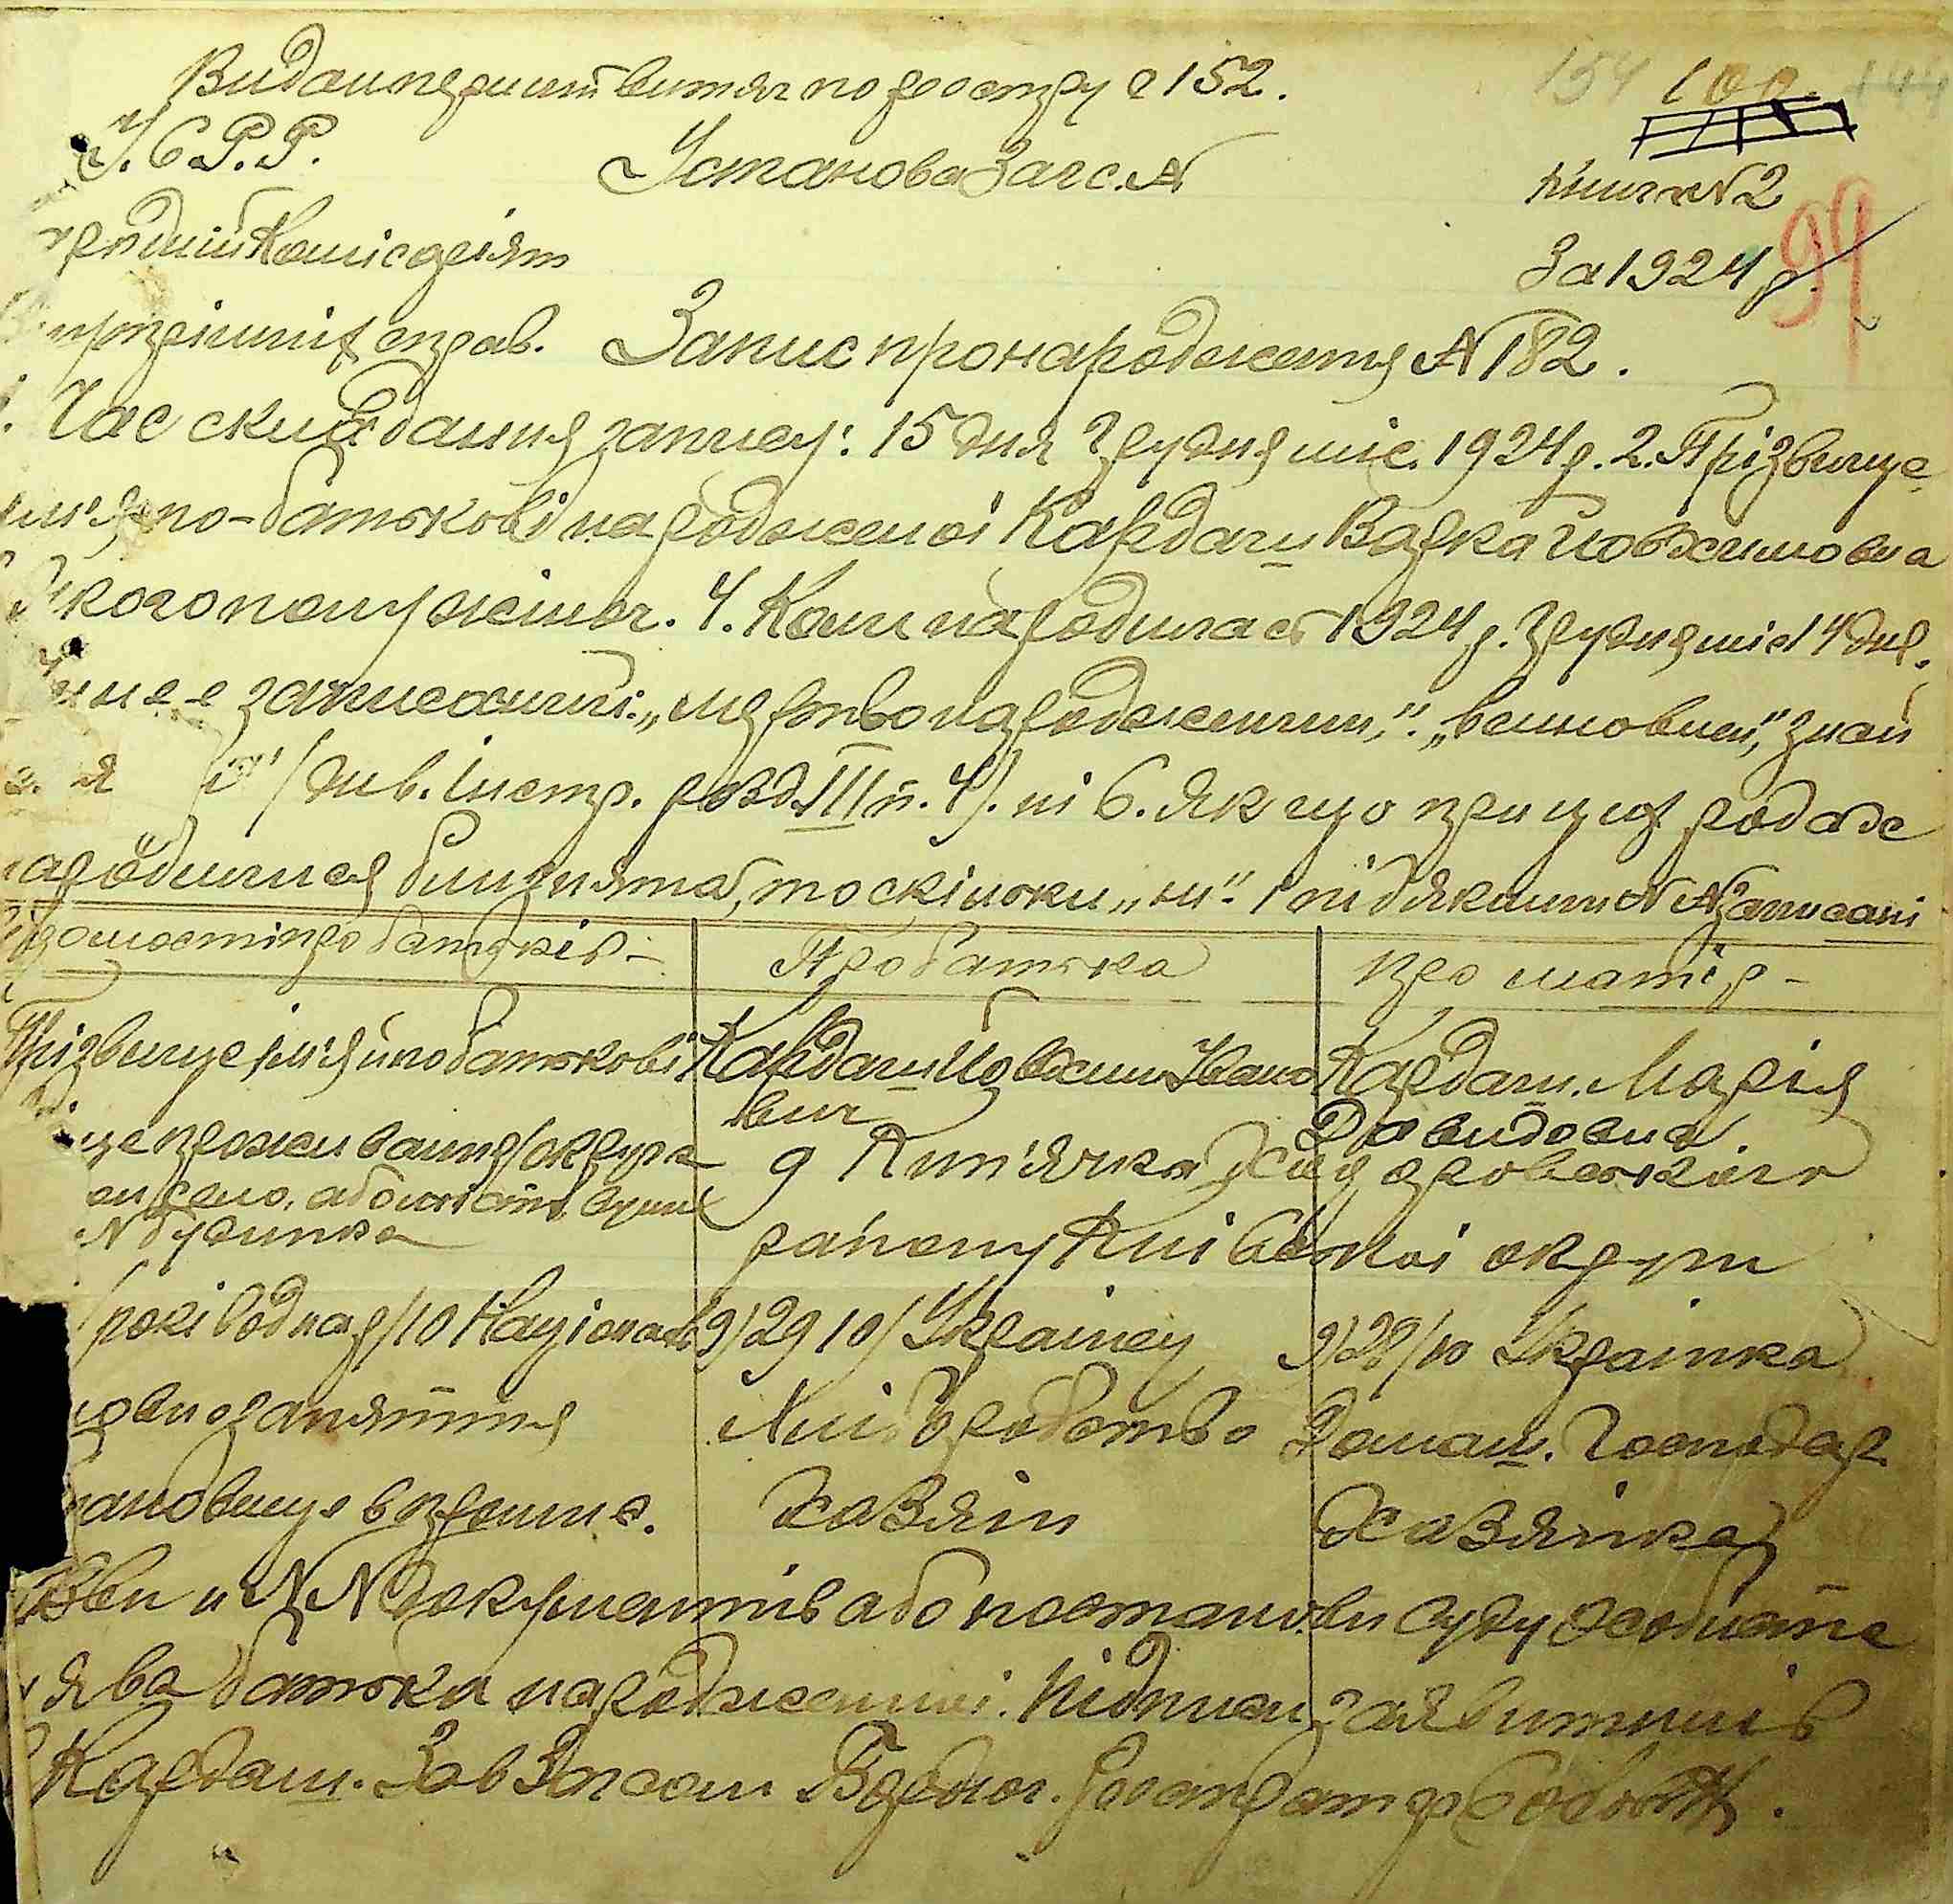 Видан перший витяг по реєстру № 152.
154 100
У.С.Р.Р. Установа Загс. №
книга № 2
99
родній Комісаріят
За 1924 р.
внутрішніх справ. Запис про народження № 182.
1. Час складання запису: 15 дня грудня міс. 1924 р. 2. Прізвище,
им'я, по-батькові народженої Кардаш Варка Йовхимовна
3. якого полу жіноч. 4. Коли народилась 1924 р. грудня міс 14 дня.
чи не є записаний: „мертвонародженим," „висновний," знай
я /див. Інстр. розд. III п. 4/. ні 6. Якщо при цих родах
народилися близнята, то скільки „ні". і під якими №№ записані
Відомости про батьків - Про батька про матір -
Прізвище, им'я й по батькові Кардаш Йовхим Івано Кардаш. Марія
вич Давидовна.
це проживання /округа
село, або місто, вулиця
№ будинка
с Кип'ячка
району Київської округи
років одная/10 Націонал 9/29 10/ Українец 9/28/10 Українка
заняття Хліборобство Домаш. Господар
становище в промис. Хазяїн Хазяйка
Назви и №№ документів або постанови суду особисте
заява батька народженної. Підписи заявителів
Кардаш. Зав Загсом